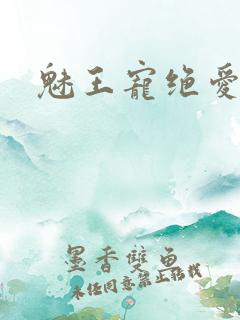 魅王寵绝爱
墨香雙魚
未经同意禁止转载